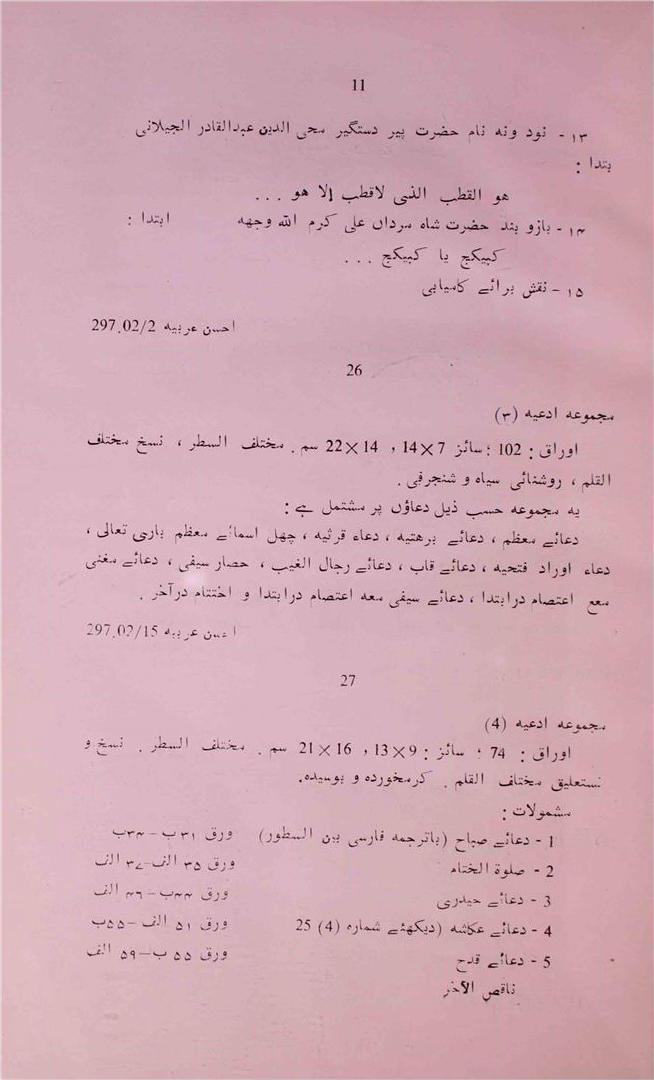 11
۱۳ - نود ونه نام حضرت پیر دستگیر محی الدین عبدالقادر الجیلانی
بتدا :
هو القطب الذی لاقطب الا هو ...
۱۴ - بازو بند حضرت شاه مرداں علی کرم اللہ وجهه ابتدا :
کبیکج یا کبیکج ...
۱۵ - نقش برائے کامیابی
احسن عربیه 297.02/2
26
مجموعه ادعیه (۳)
اوراق : 102 ؛ سائز 7×14 , 14×22 سم . مختلف السطر ، نسخ مختلف
القلم ، روشنائی سیاه و شنجرفی .
یه مجموعه حسب ذیل دعاؤں پر مشتمل ہے :
دعائے معظم ، دعائے برهتیه ، دعاء قرثیه ، چهل اسمائے معظم باری تعالی ،
دعاء اوراد فتحیه ، دعائے قاب ، دعائے رجال الغیب ، حصار سیفی ، دعائے مغنی
مع اعتصام درابتدا ، دعائے سیفی معه اعتصام درابتدا و اختتام درآخر .
احسن عربیه 297.02/15
27
مجموعه ادعیه (4)
اوراق : 74 ؛ سائز : 9×13 , 16×21 سم . مختلف السطر . نسخ و
نستعلیق مختلف القلم . کرمخورده و بوسیده.
مشمولات :
1 - دعائے صباح (باترجمه فارسی بین السطور) ورق ۳۱ ب - ۳۴ب
2 - صلوة الختام ورق ۳۵ الف-۳۷ الف
3 - دعائے حیدری ورق ۴۴ب - ۴۶ الف
4 - دعائے عکاشه (دیکھئے شماره (4) 25 ورق ۵۱ الف -۵۵ب
5 - دعائے قدح ورق ۵۵ ب-۵۹ الف
ناقص الآخر